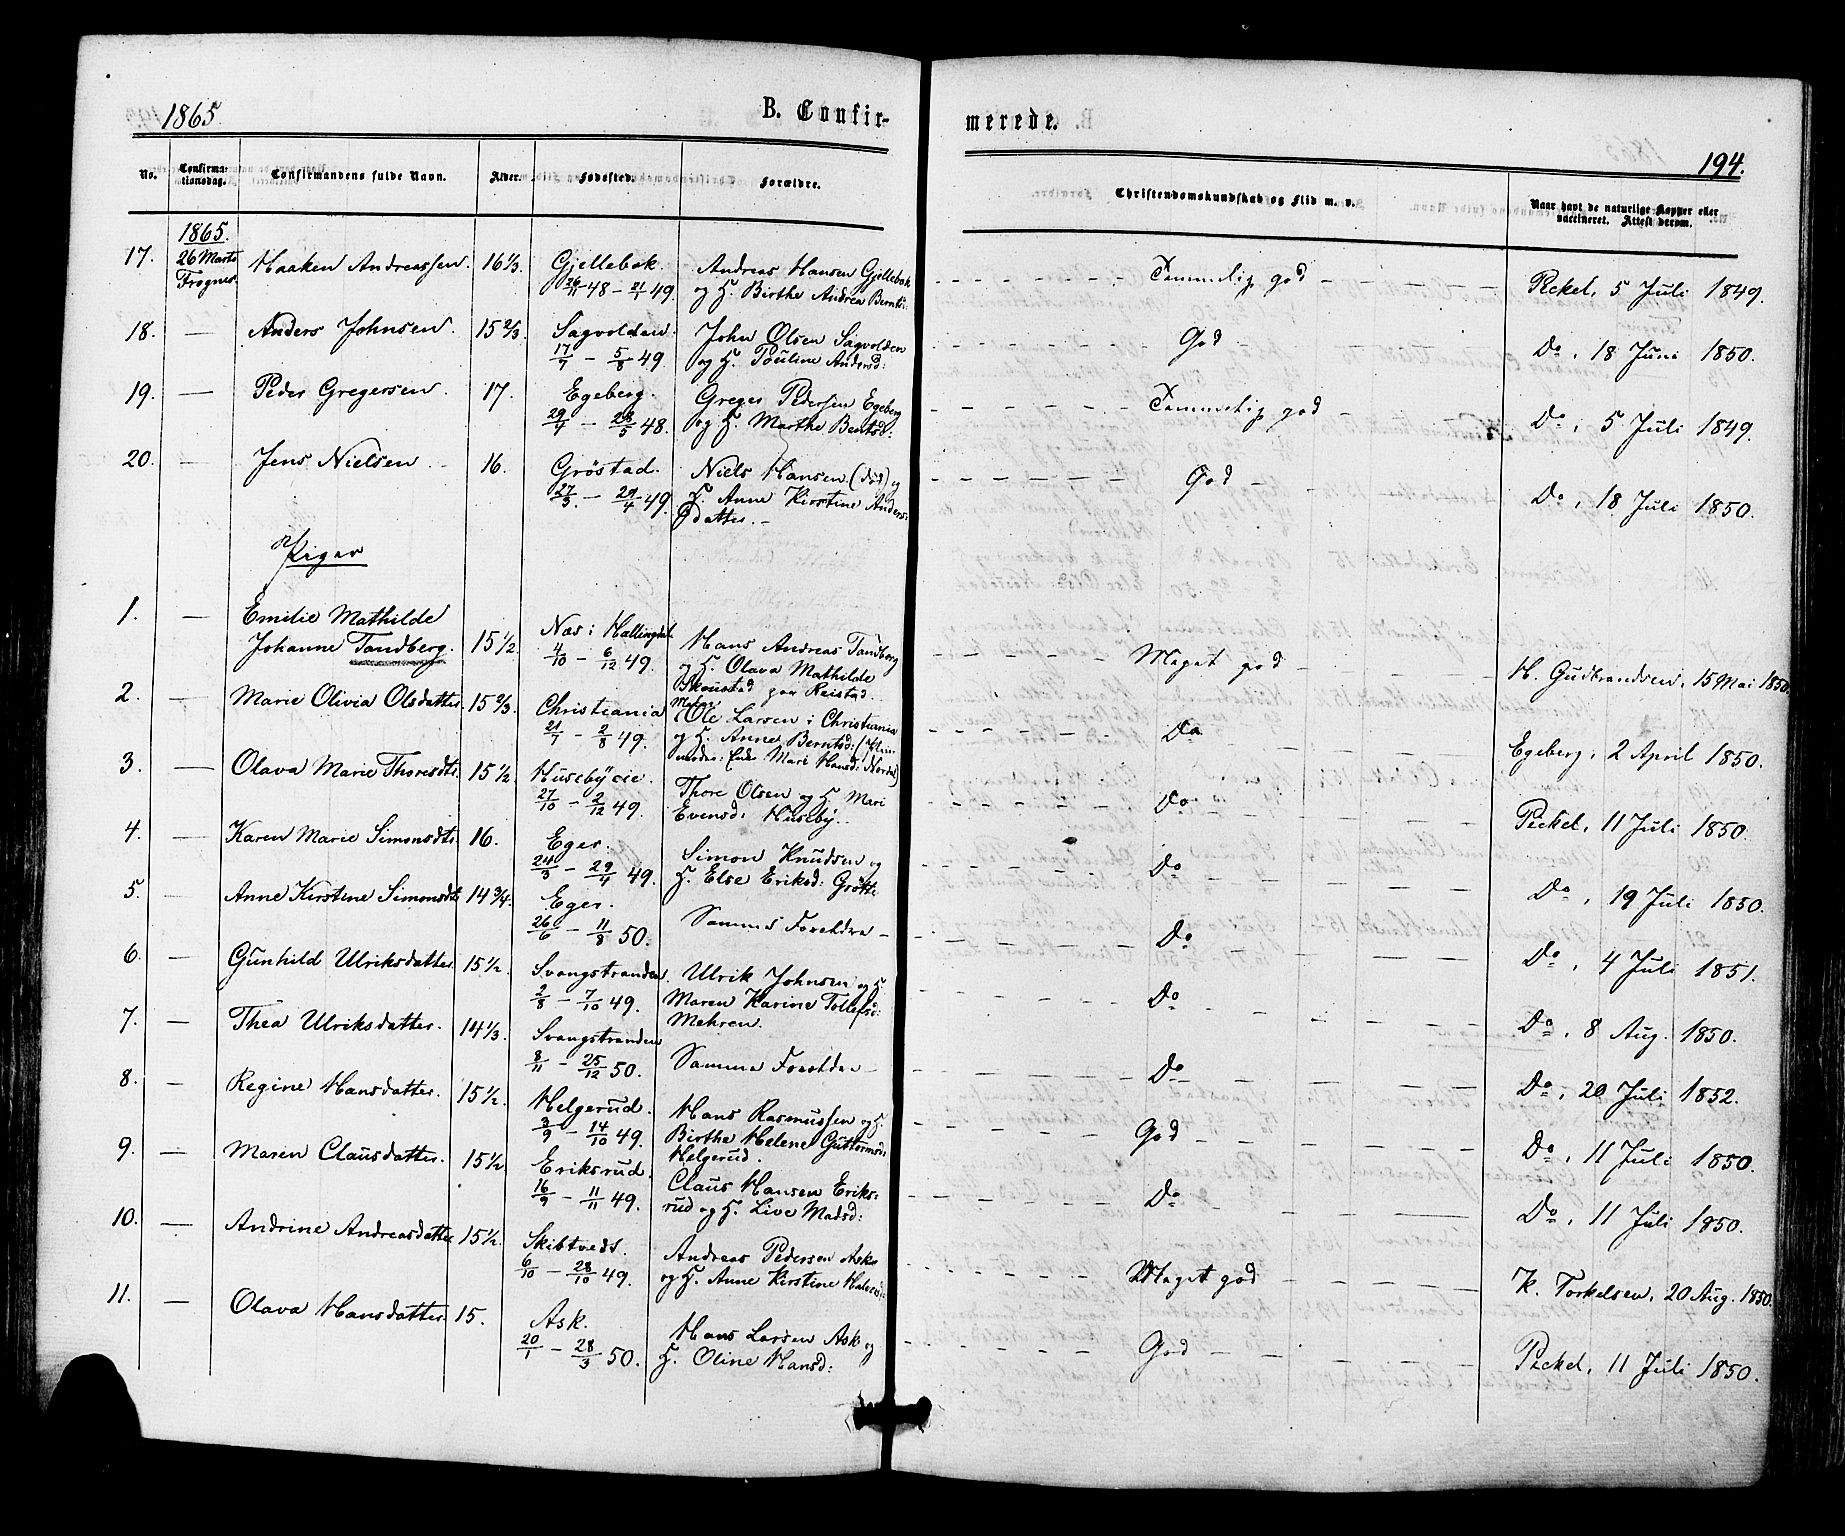 1865. B. Confir-merede. 194.
No. Confirmationsdag. Confirmandens fulde Navn. Alder. Fødested. Forældre. Christendomskundskab og Flid m. v. Naar havt de naturlige Kopper eller vaccineret. Attest derom.
1865.
17. 26 Marts Haaken Andreassen. 16 1/3. Gjellebæk. Andreas Hansen Gjellebæk - - - - - Temmelig god - - - Peckel, 5 Juli 1849.
Frogner. 26/11 48 - 21/1 49. og H. Birthe Andrea Bernts:
18. — Anders Johnsen. 15 2/3. Sagvolden. John Olsen Sagvolden - - - - - God - - - Do, 18 Juni 1850.
17/7 - 5/8 49. og H. Pouline Andersd:
19. — Peder Gregersen. 17. Egeberg. Greger Pedersen Egeberg - - - - - Temmelig god - - - Do, 5 Juli 1849.
og H. Marthe Berntsd:
20. — Jens Nielsen. 16. Gröstad. Niels Hansen (död) og - - - - - God - - - Do, 18 Juli 1850.
27/3. - 29/4 49. H. Anne Kirstine Anders:
datter. -
Piger
1. — Emilie Mathilde
Johanne Tandberg. 15 1/2 Næs i Hallingdal. Hans Andreas Tandberg - - - - - Meget god - - - H. Gudbrandsen, 15 Mai 1850.
4/10 - 6/12 49. og H. Olava Mathilde
Skoustad paa Reistad.
2. — Marie Olivia Olsdatter. 15 2/3. Christiania Ole Larsen i Christiania - - - - - Do - - - Egeberg, 2 April 1850.
21/7 - 2/8 49. og H. Anne Berntsd:
Enke Mari Hansd:
3. — Olava Marie Thoresdtr. 15 1/2 Husebyeie. Thore Olsen og H. Mari - - - - - Do - - - Peckel, 11 Juli 1850.
27/10 - 2/12 49. Evensd: Huseby.
4. — Karen Marie Simonsdtr. 16. Eger. Simon Knudsen og - - - - - Do - - - Do, 19 Juli 1850.
24/3 - 29/4 49. H. Else Eriksd: Grötte
5. — Anne Kirstine Simonsdtr 14 3/4. Eger. Samme Forældre - - - - - Do - - - Do, 4 Juli 1851.
26/6 - 11/8 50.
6. — Gunhild Ulriksdatter. 15 1/2. Svangstranden Ulrik Johnsen og H. - - - - - Do - - - Do, 8 Aug. 1850.
2/8 - 7/10 49. Maren Karine Tollefsd:
Mehren.
7. — Thea Ulriksdatter. 14 1/3. Svangstranden Samme Forældre - - - - - Do - - - Do, 20 Juli 1852.
8/11 - 25/12 50.
8. — Regine Hansdatter. 15 1/2. Helgerud. Hans Rasmussen og H. - - - - - God - - - Do, 11 Juli 1850.
3/9 - 14/10 49. Birthe Helene Guttormsd:
Helgerud.
9. — Maren Clausdatter. 15 1/2 Eriksrud. Claus Hansen Eriks: - - - - - Do - - - Do, 11 Juli 1850.
16/9 - 11/11 49. rud og H. Live Madsd:
10. — Andrine Andreasdatter 15 1/2. Skibtvedt. Andreas Pedersen Ask - - - - - Meget god - - - K. Torkelsen, 20 Aug. 1850.
6/10 - 28/10 49. og H. Anne Kirstine
11. — Olava Hansdatter. 15. Ask. Hans Larsen Ask og - - - - - God - - - Peckel, 11 Juli 1850.
20/1 - 28/3 50. H. Oline Hansd: